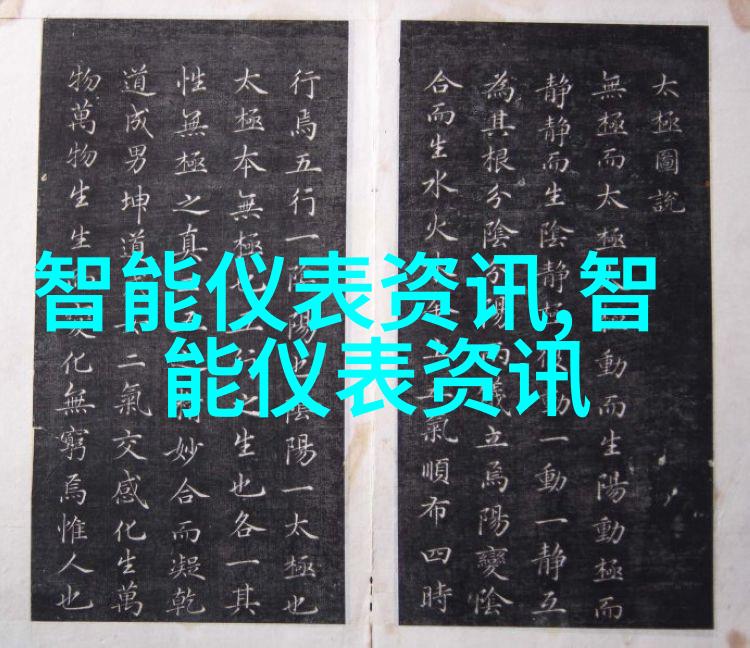 太極圖說
無極而太極動而生陽動極而
静静而生陰静極復動一動一静互
為其根分陰分陽而義立焉陽變陰
合而生水火氣順布四時
行焉五行一陰陽也陰陽一太極也
太極本無極也之生也各一其
性無極之真五精妙合而凝乾
道成男坤道二氣交感化生萬
物萬物生生變化無窮焉惟人也
智能仪表资讯,智
能仪表资讯